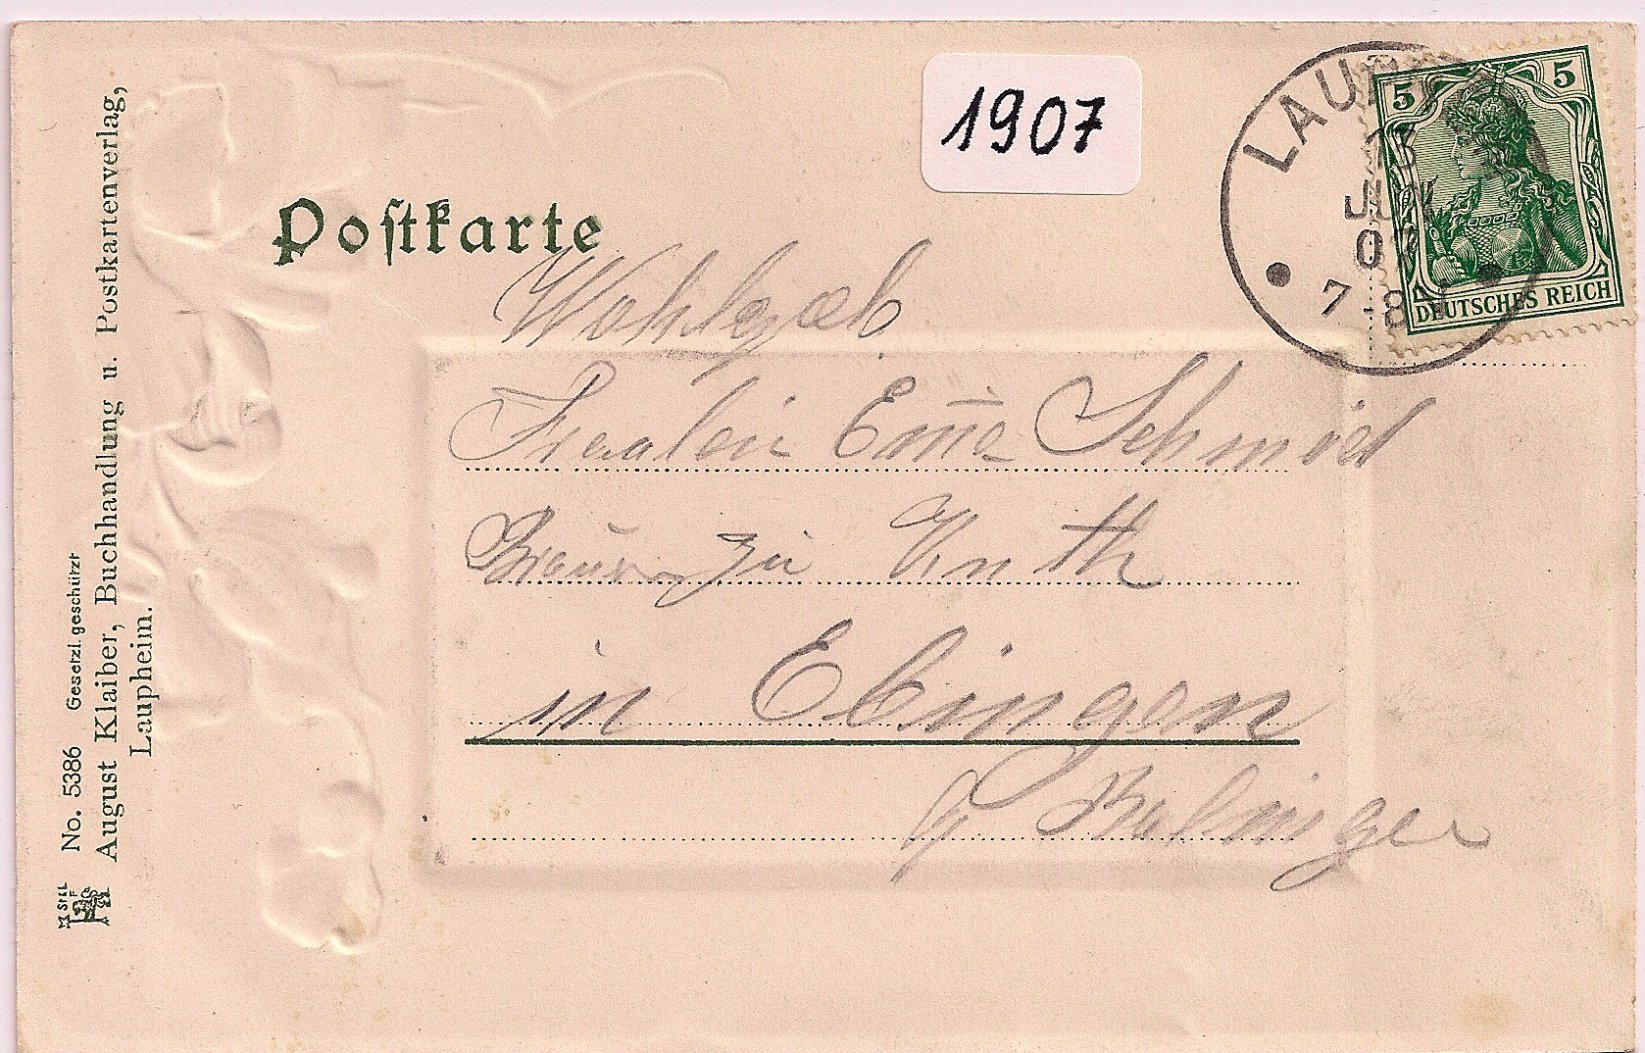 1907
Postkarte
LAUP
13
JUN
07
7-8
5 5
DEUTSCHES REICH
Wohlgeb
Fraulein Eme Schmid
Brauer zu
in Ebingen
Balinger
No. 5386 Gesetzl. geschützt
August Klaiber, Buchhandlung u. Postkartenverlag,
Laupheim.